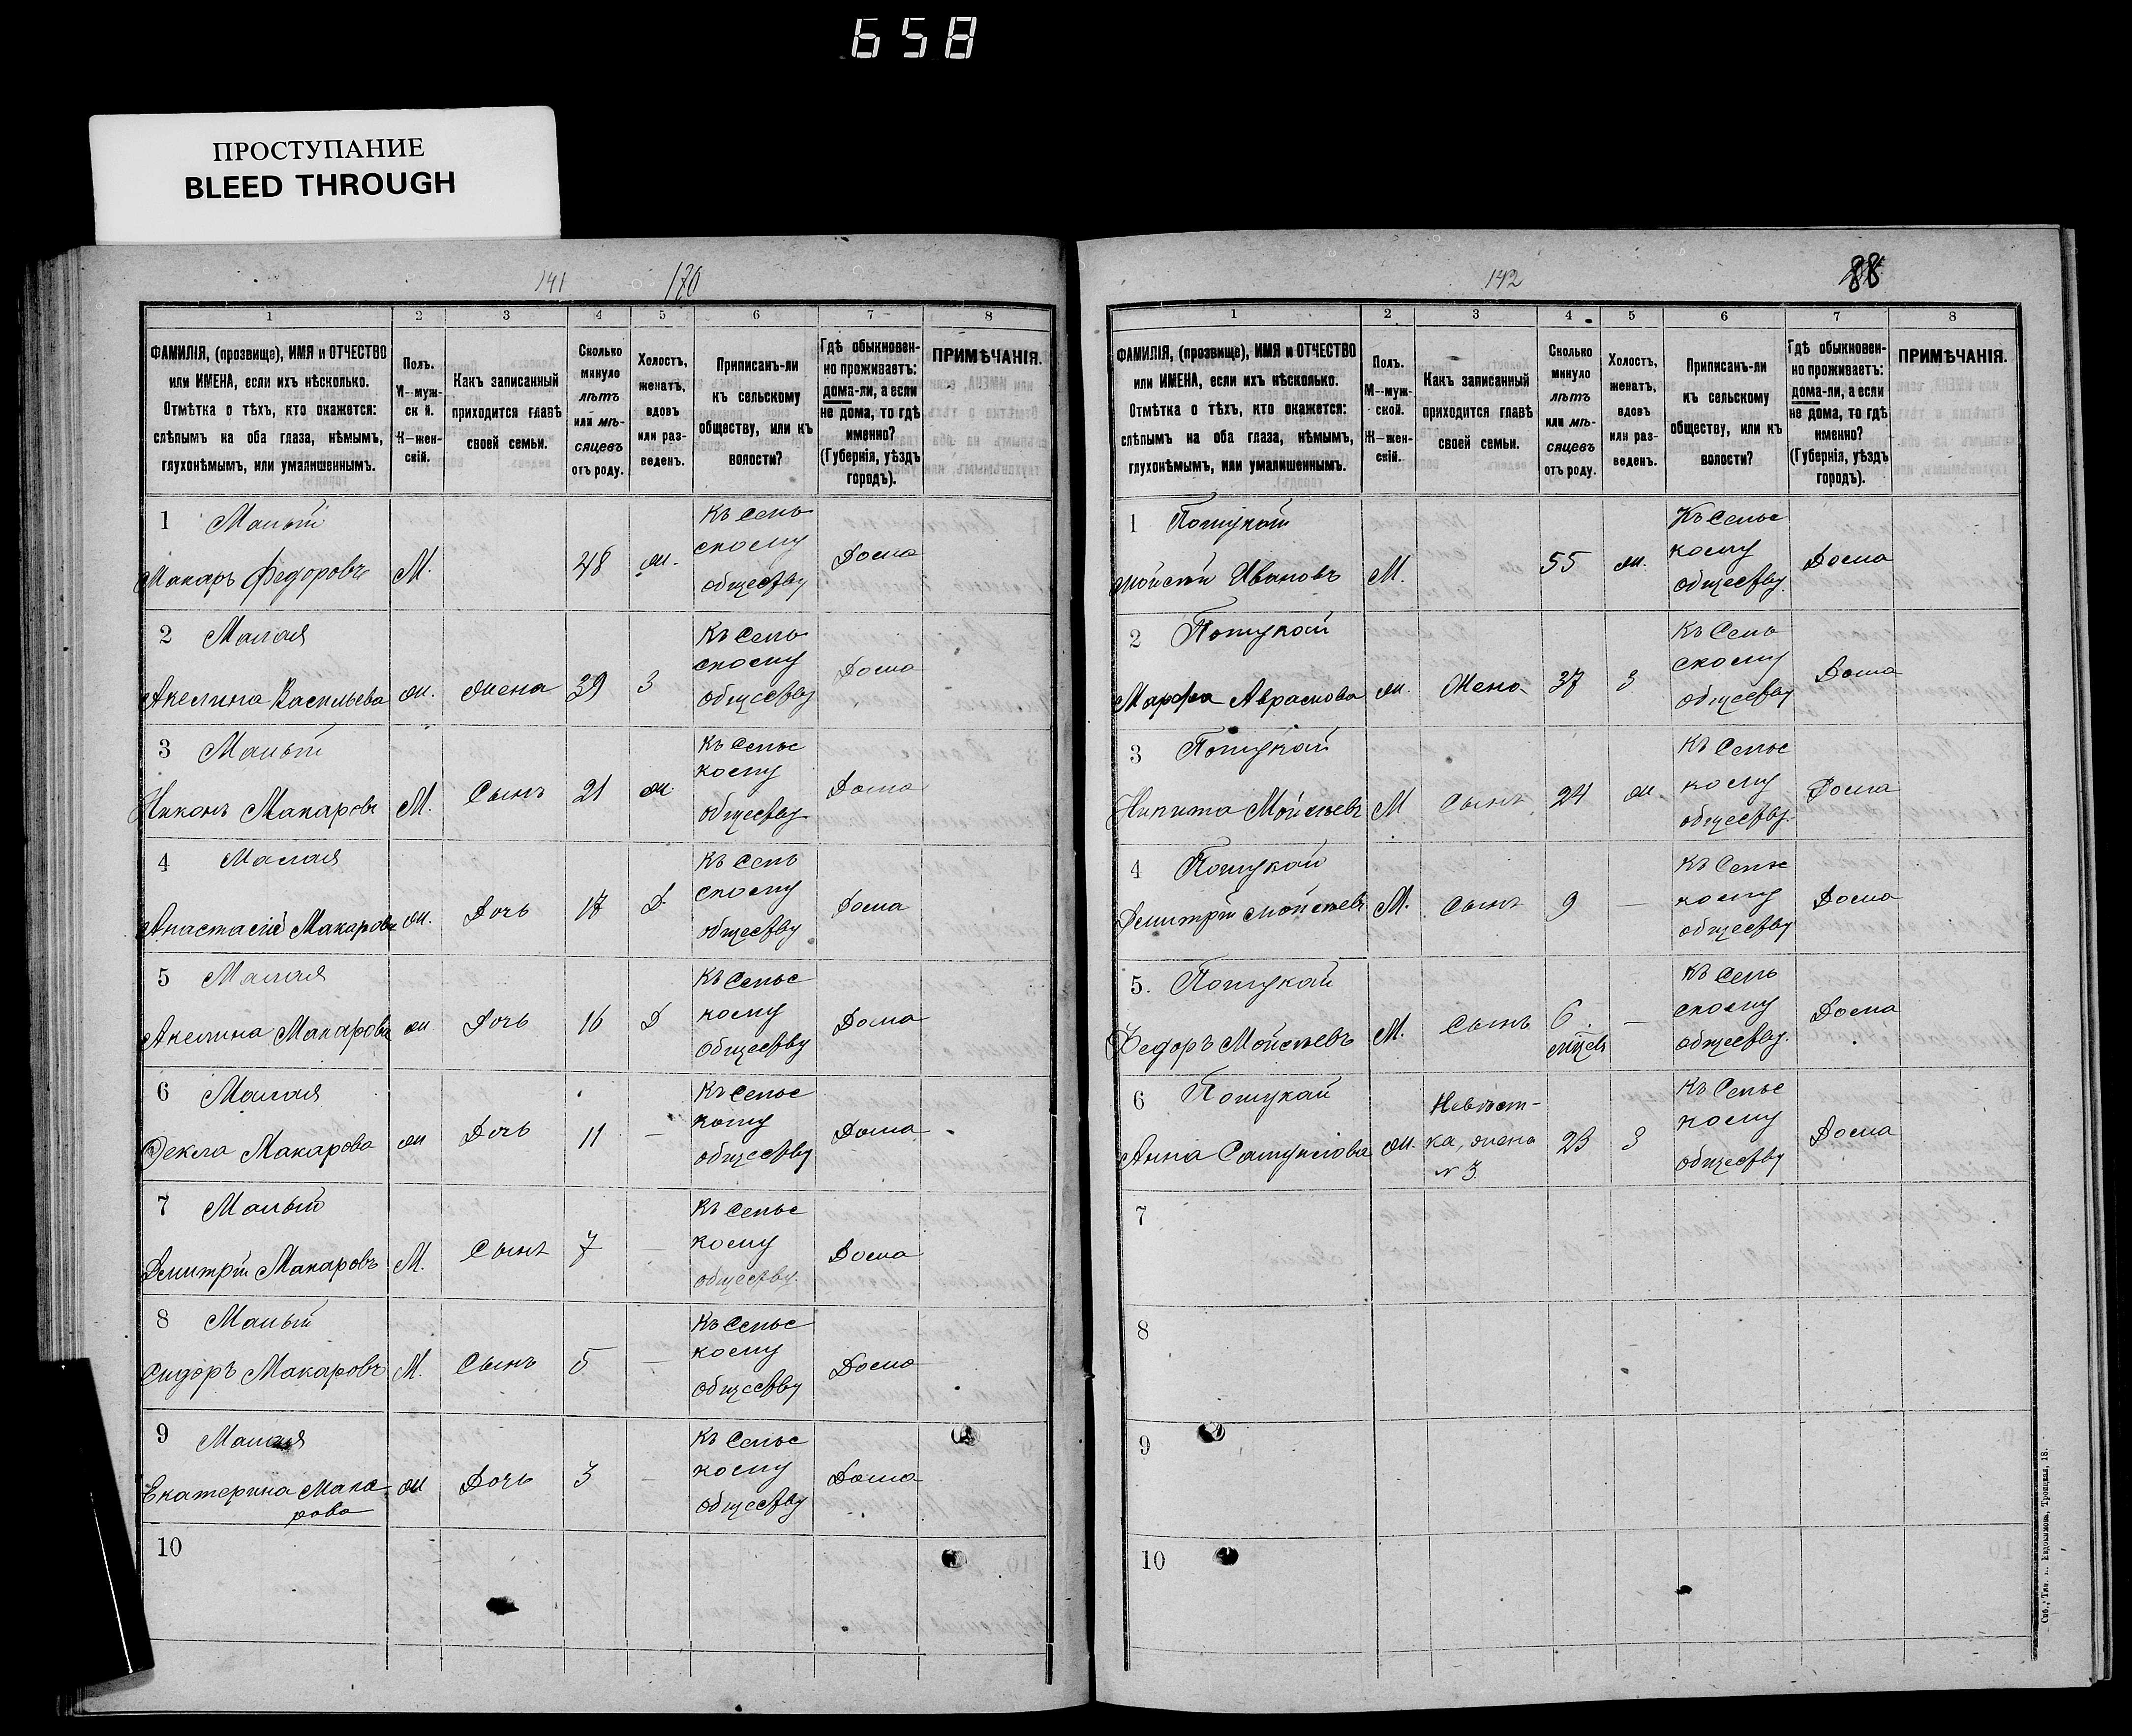 658
ПРОСТУПАНИЕ
BLEED THROUGH
141 170
1 2 3 4 5 6 7 8
ФАМИЛІЯ, (прозвище), ИМЯ и ОТЧЕСТВО или ИМЕНА, если ихъ нѣсколько. Отмѣтка о тѣхъ, кто окажется: слѣпымъ на оба глаза, нѣмымъ, глухонѣмымъ, или умалишеннымъ.
Полъ. М—муж-ск й. Ж—жен-скій.
Какъ записанный приходится главѣ своей семьи.
Сколько минуло лѣтъ или мѣ-сяцевъ отъ роду.
Холостъ, женатъ, вдовъ или раз-веденъ.
Приписанъ-ли къ сельскому обществу, или къ волости?
Гдѣ обыкновен-но проживаетъ: дома-ли, а если не дома, то гдѣ именно? (Губернія, уѣздъ городъ).
ПРИМѢЧАНІЯ.
1 Малый
Макаръ Федоровъ М. 48 ж. Къ сель скому обществу Дома
2 Малая
Акелина Васильева ж. жена 39 З Къ сель скому обществу Дома
3 Малый
Никонъ Макаровъ М. Сынъ 21 ж. Къ сельс кому обществу Дома
4 Малая
Анастасія Макарова ж. Дочь 17 Д Къ сель скому обществу Дома
5 Малая
Акелина Макарова ж Дочь 16 Д Къ сельс кому обществу Дома
6 Малая
Фекла Макарова ж Дочь 11 — Къ сельс кому обществу Дома
7 Малый
Дмитрій Макаровъ М. Сынъ 7 — Къ сельс кому обществу. Дома
8 Малый
Сидоръ Макаровъ М. Сынъ 5 — Къ сельс кому обществу Дома
9 Малая
Екатерина Мака рова ж Дочь 3 — Къ сельс кому обществу Дома
10
142 88
1 2 3 4 5 6 7 8
ФАМИЛІЯ, (прозвище), ИМЯ и ОТЧЕСТВО или ИМЕНА, если ихъ нѣсколько. Отмѣтка о тѣхъ, кто окажется: слѣпымъ на оба глаза, нѣмымъ, глухонѣмымъ, или умалишеннымъ.
Полъ. М—муж-ской. Ж—жен-скій.
Какъ записанный приходится главѣ своей семьи.
Сколько минуло лѣтъ или мѣ-сяцевъ отъ роду.
Холостъ, женатъ, вдовъ или раз-веденъ.
Приписанъ-ли къ сельскому обществу, или къ волости?
Гдѣ обыкновен-но проживаетъ: дома-ли, а если не дома, то гдѣ именно? (Губернія, уѣздъ городъ).
ПРИМѢЧАНІЯ.
1
Мойсѣй Ивановъ М. 55 ж. Къ сельс кому обществу. Дома
2
Марфа Абрамова ж. Жена 37 З Къ сель скому обществу Дома
3
Никита Мойсѣевъ М Сынъ 24 ж. Къ сельс кому обществу. Дома
4
Дмитрій Мойсѣевъ М. Сынъ 9 — Къ сельс кому обществу Дома
5.
Федоръ Мойсѣевъ М. Сынъ 6 — Къ сель скому обществу. Дома
6
Анна Самуилова ж. Невѣст-ка, жена № 3. 23 З Къ сельс кому обществу Дома
7
8
9
10
Спб., Тип. п. Евдокимова, Троицкая, 18.